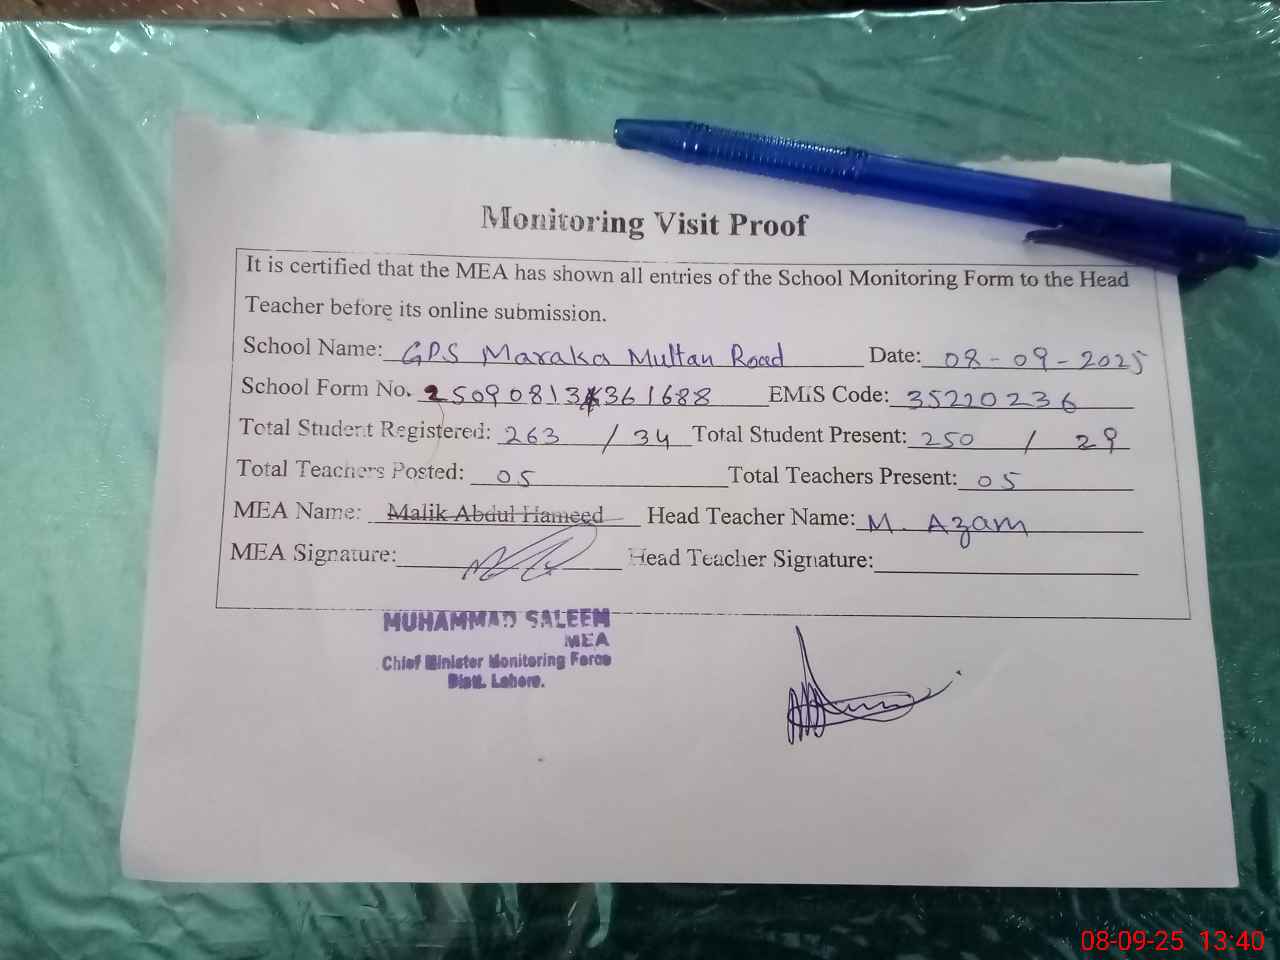 Monitoring Visit Proof
It is certified that the MEA has shown all entries of the School Monitoring Form to the Head
Teacher before its online submission.
School Name: GPS Maraka Multan Road Date: 08-09-2025
School Form No. EMiS Code: 35220236
Total Student Registered: 263 / 34 Total Student Present: 250 / 29
Total Teachers Posted: 05 Total Teachers Present: 05
MEA Name: Malik Abdul Hameed Head Teacher Name: M. Azam
MEA Signature: Head Teacher Signature:
MUHAMMAD SALEEM
MEA
Chief Minister Monitoring Force
Distt. Lahore.
08-09-25 13:40